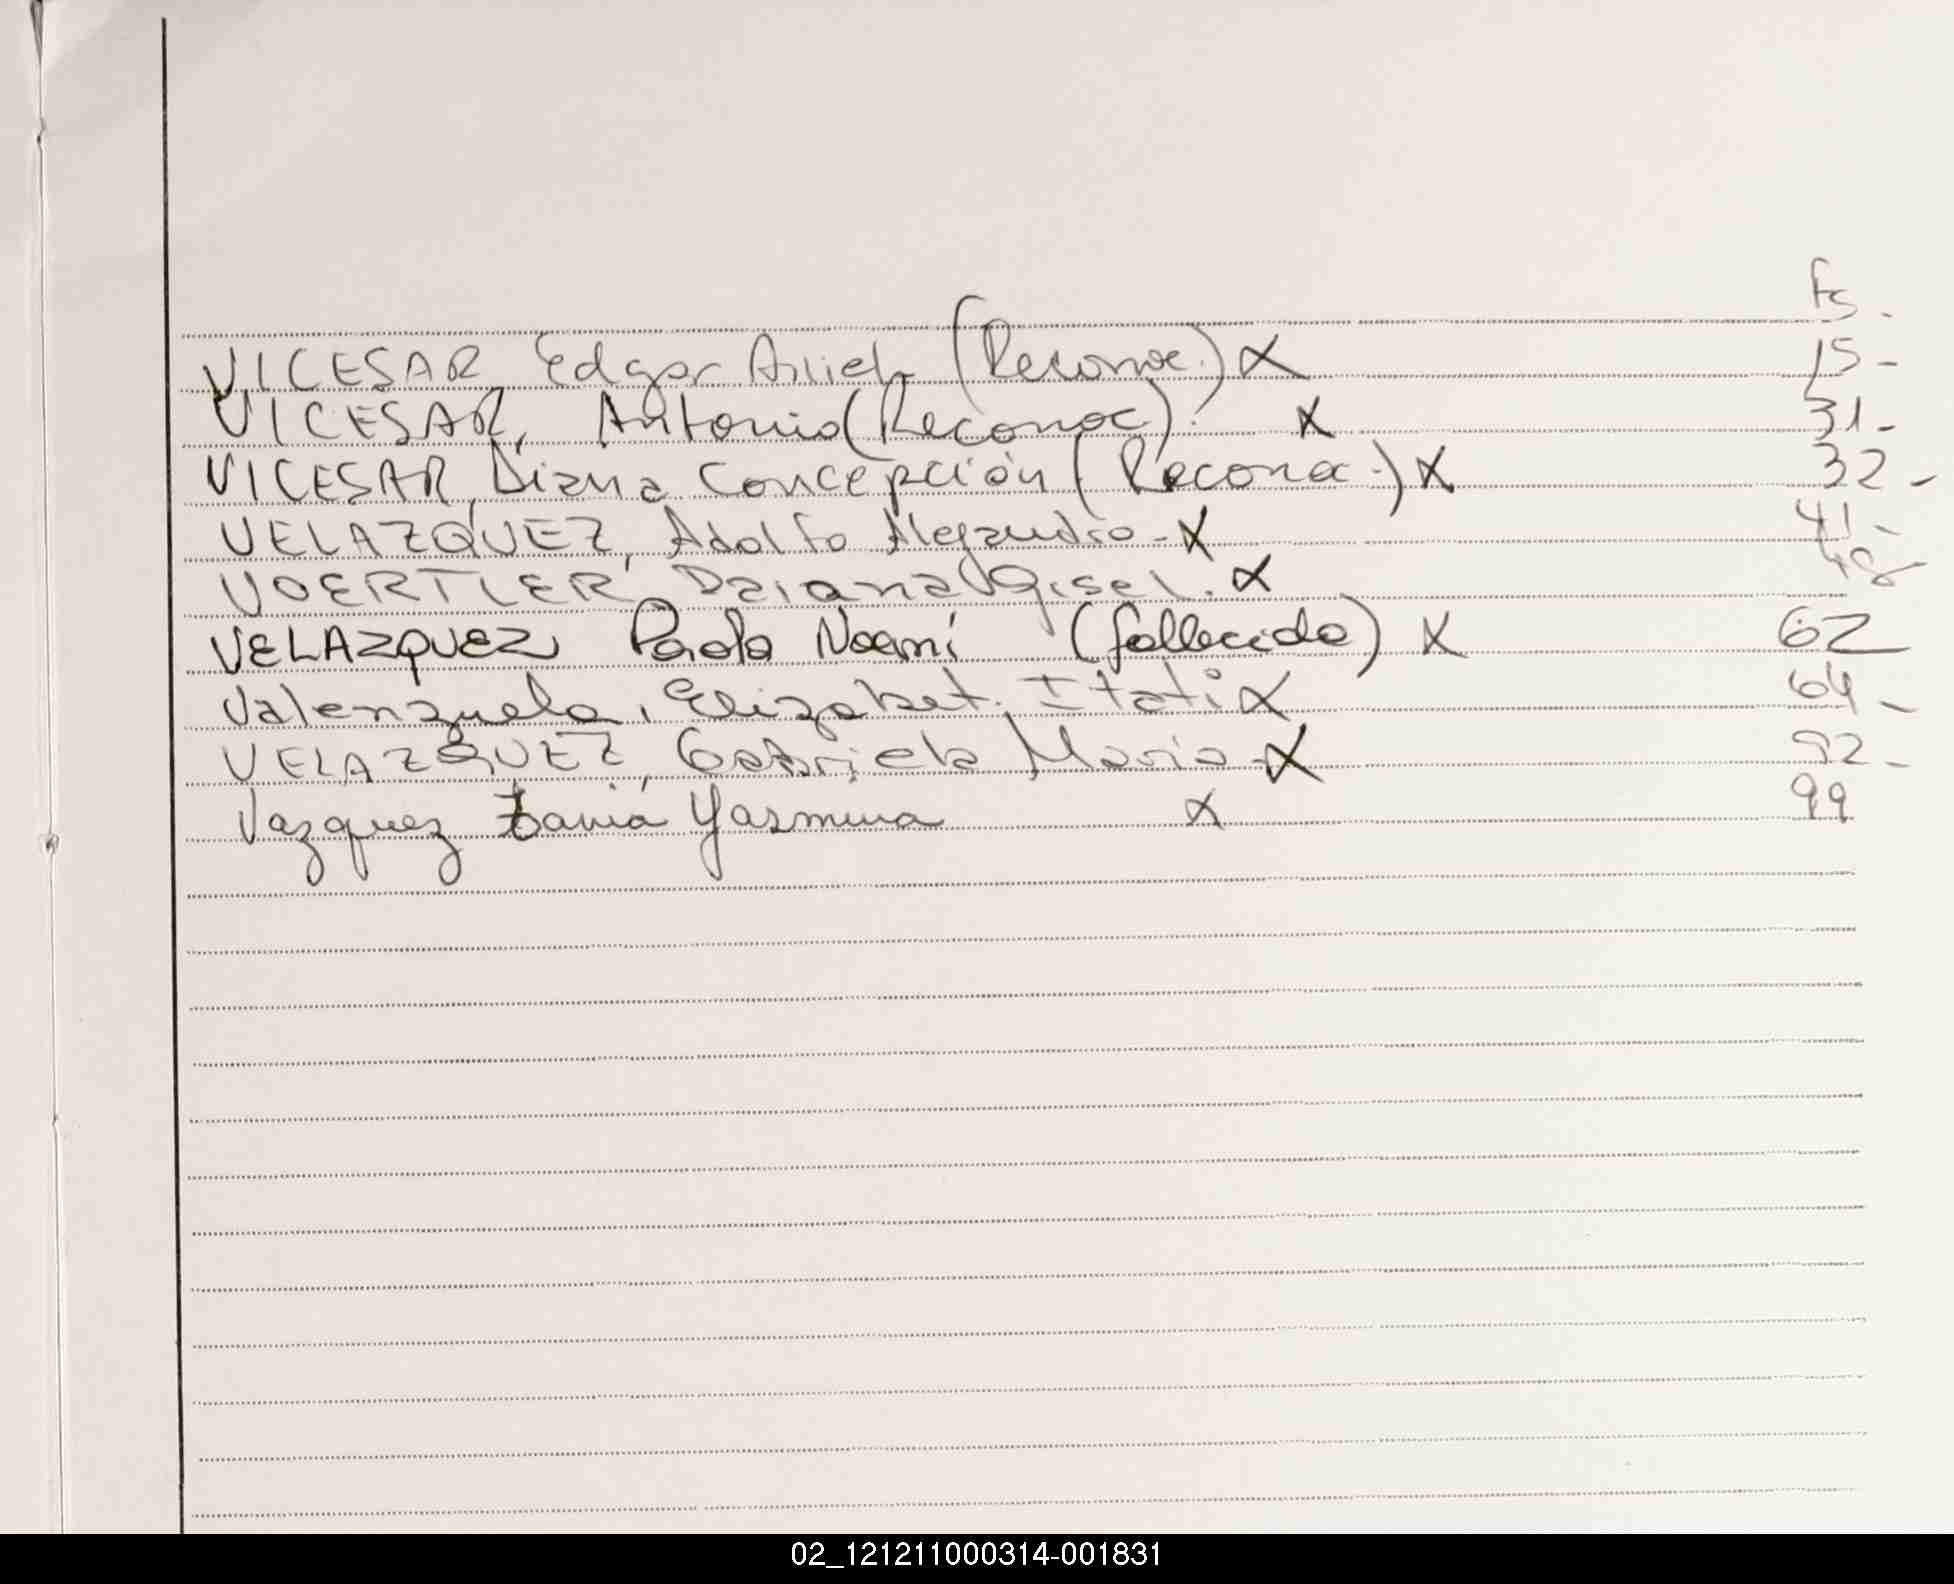 Fs.
VICESAR Edgar Ariel (Reconoc.) X 15-
VICESAR, Antonio (Reconoc). X 31-
VICESAR, Diana Concepción (Reconoc.) X 32-
VELAZQUEZ, Adolfo Alejandro - X 41-
VOERTLER, Daiana Gisel. X 48
VELAZQUEZ Paola Noemí (fallecida) X 62
Valenzuela, Elizabet. Itatí X 64-
VELAZQUEZ, Gabriela María - X 92-
Vazquez Tania Yasmina X 99
02_121211000314-001831